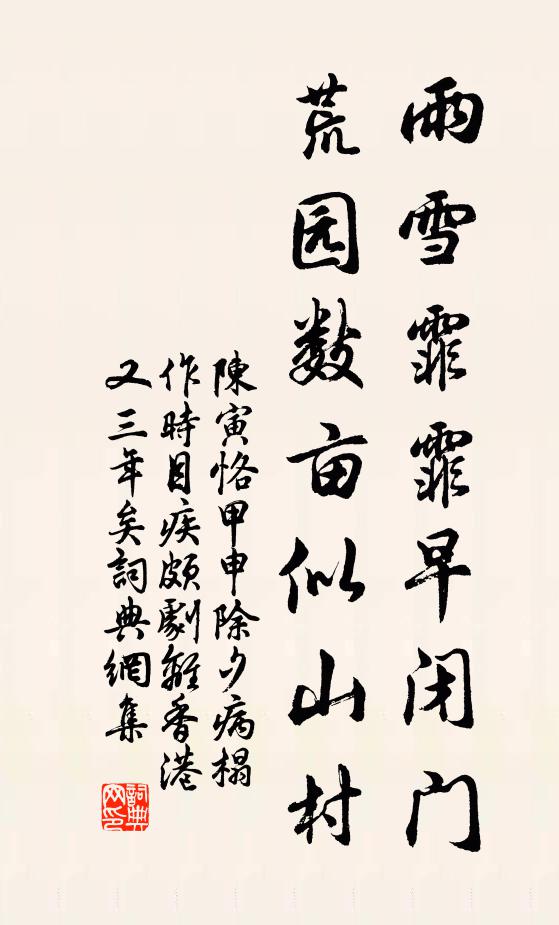 雨雪霏霏早闭门
荒园数亩似山村
陳寅恪甲申除夕病榻
作時目疾頗劇離香港
又三年矣詞典網集
詞典网印